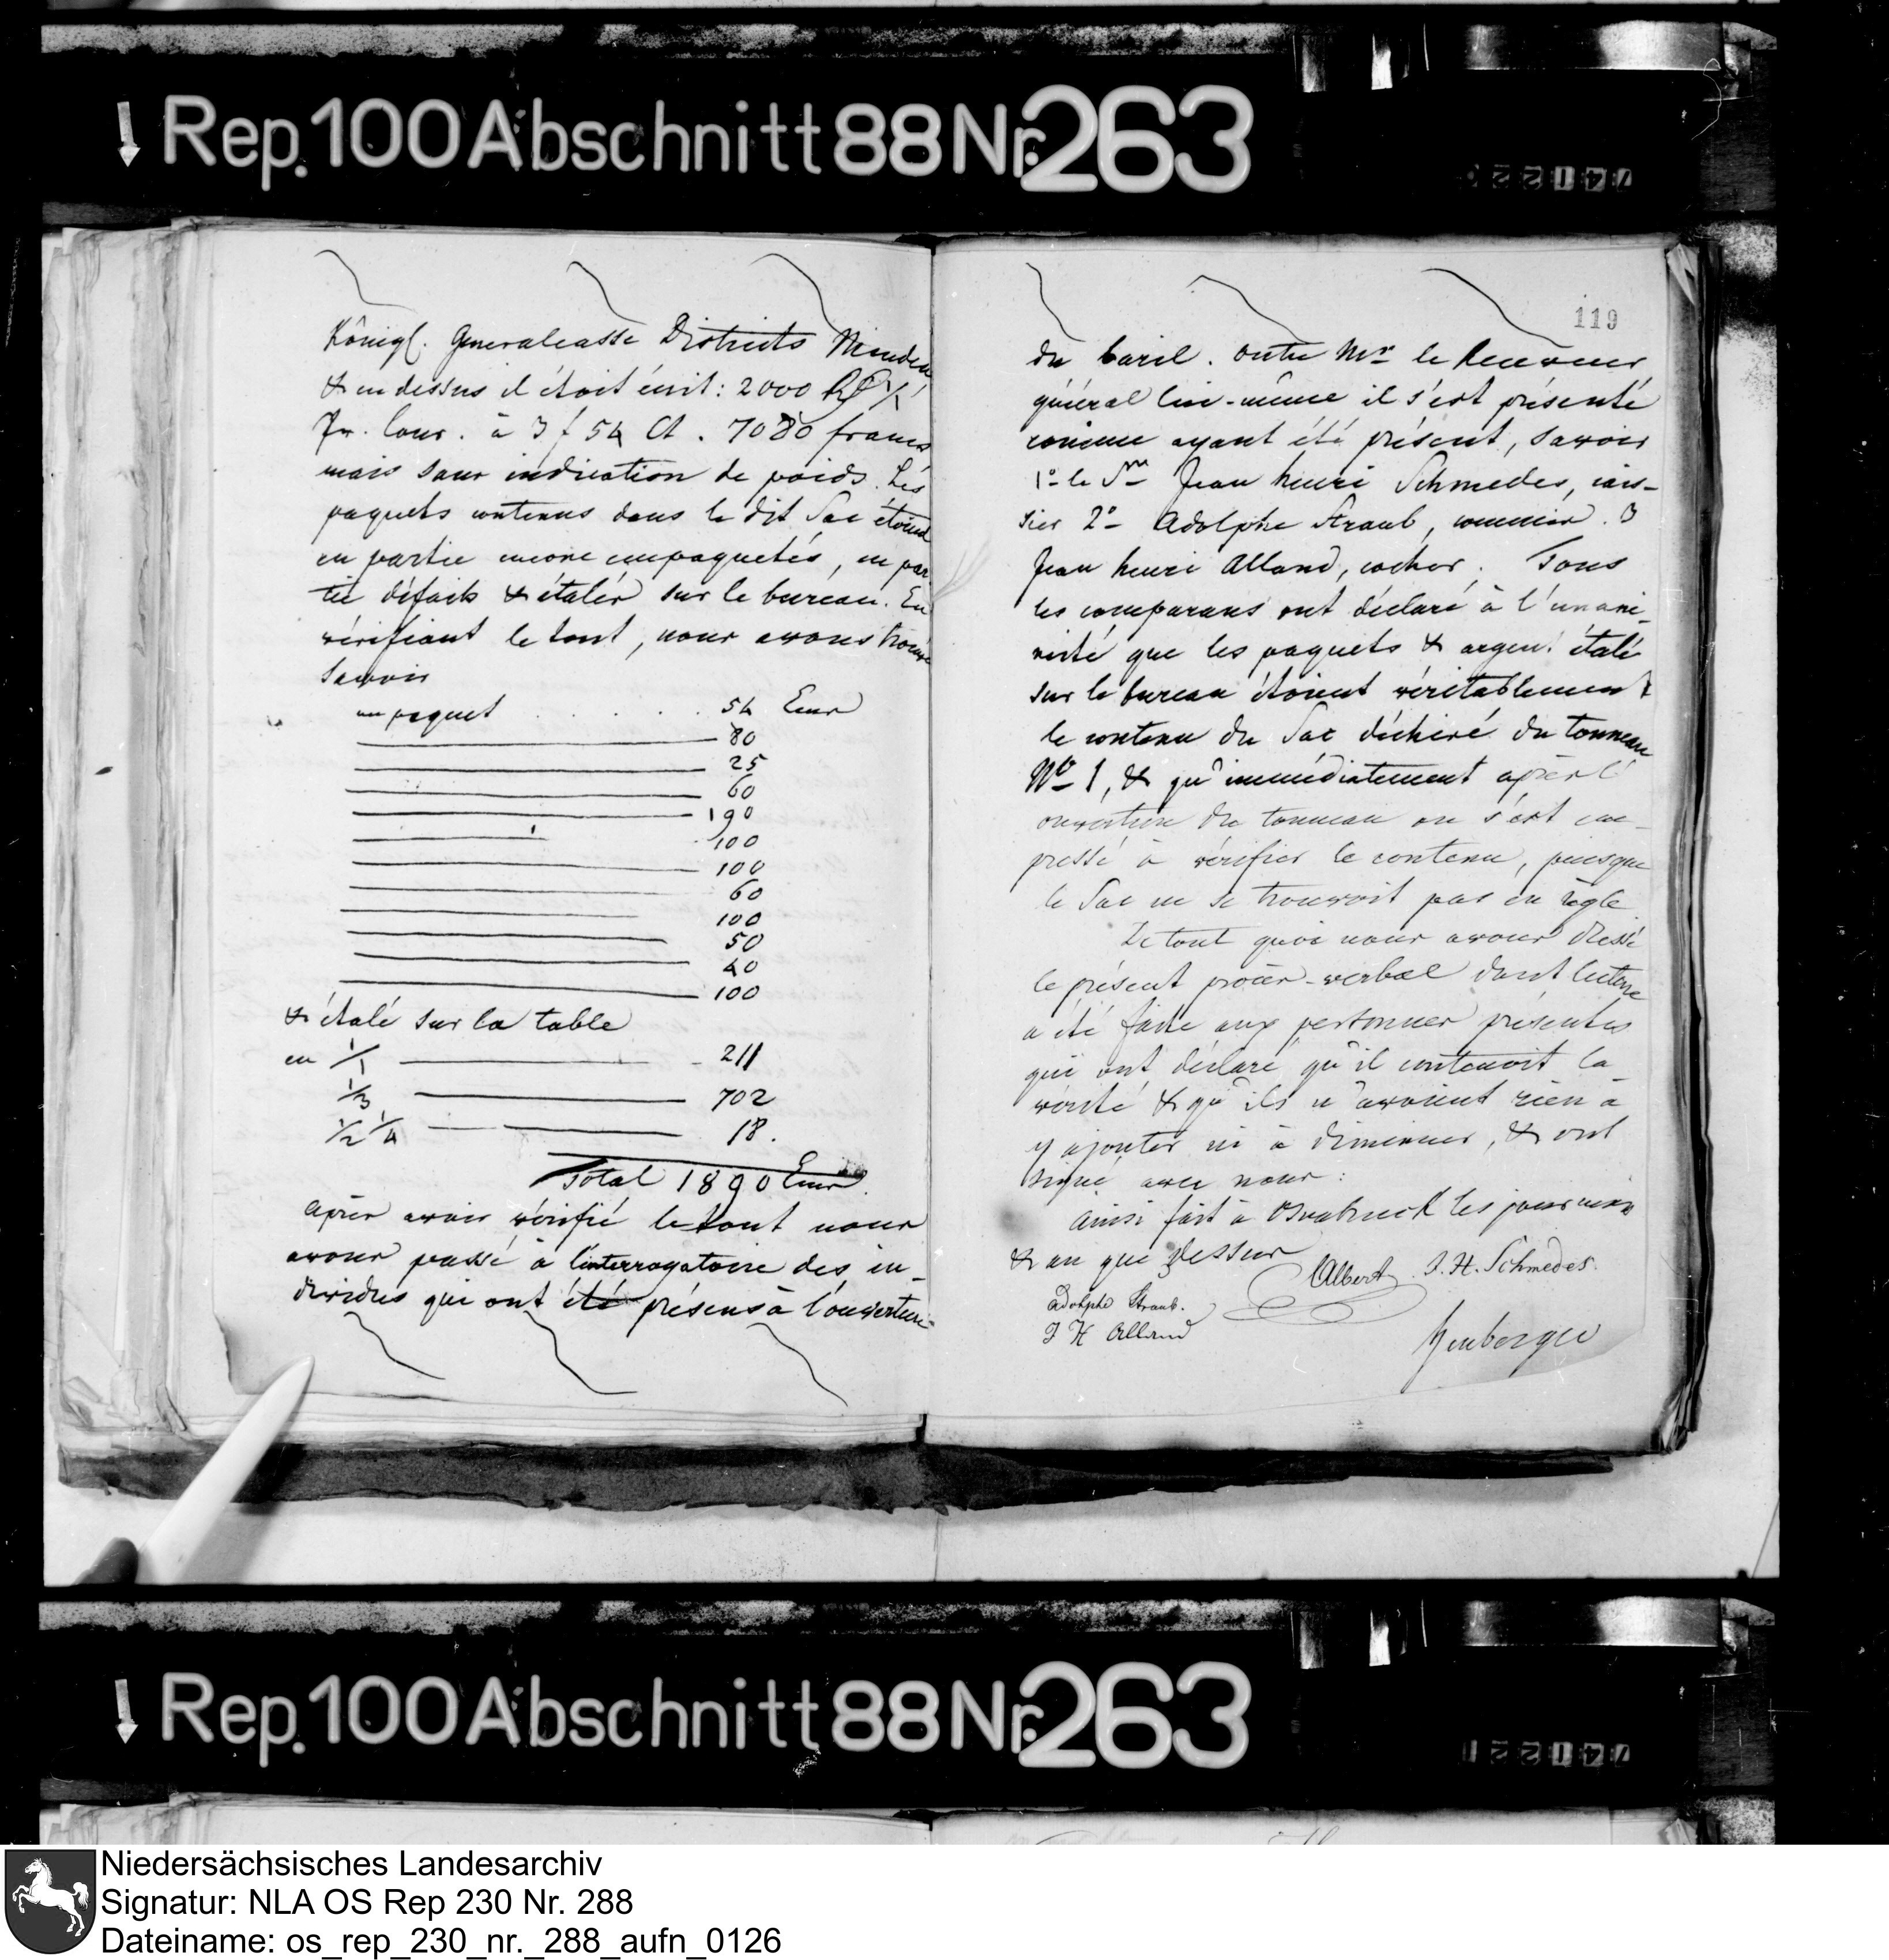 Rep. 100 Abschnitt 88 Nr. 263
Königl. Generalcasse Districts Minden
& en dessus il étoit écrit: 2000
Pr. Cour. à 3 f 54 Ct. 7080 francs
mais sans indication de poids. Les
paquets contenus dans le dit Sac étoient
en partie encore empaquetés, en par
tie défaits & étalés sur le bureau. En
vérifiant le tout, nous avons trouvé
savoir
un paquet . . . . 54 Ecus
80
25
60
190
100
100
60
100
50
40
100
& étalé sur la table
en 1/1 211
1/3 702
1/2 1/4 18.
Total 1890 Ecus
après avoir vérifié le tout nous
avons passé à l'interrogatoire des in-
dividus qui ont été présens à l'ouverture
119
du baril. Outre Mr le Receveur
général lui-même il s'est présenté
comme ayant été présent, savoir
1º le Sr Jean henri Schmedes, cais-
sier 2º Adolphe Straub, commis. 3
Jean henri Alland, cocher. Tous
les comparans ont déclaré à l'unani-
mité que les paquets & argent étalé
sur le bureau étoient véritablement
le contenu du Sac déchiré du tonneau
No 1, & qu'immédiatement après l'
ouverture du tonneau on s'est em-
pressé à vérifier le contenu, puisque
le Sac ne se trouvoit pas en règle
De tout quoi nous avons dressé
le présent procès-verbal dont lecture
a été faite aux personnes présentes
qui ont déclaré qu'il contenoit la
vérité & qu'ils n'avoient rien à
y ajouter ni à diminuer, & ont
signé avec nous:
ainsi fait à Osnabruck les jour mois
& an que dessus
Albert J. H. Schmedes.
Adolphe Straub.
J H Alland
Heuberger
Rep. 100 Abschnitt 88 Nr. 263
Niedersächsisches Landesarchiv
Signatur: NLA OS Rep 230 Nr. 288
Dateiname: os_rep_230_nr._288_aufn_0126